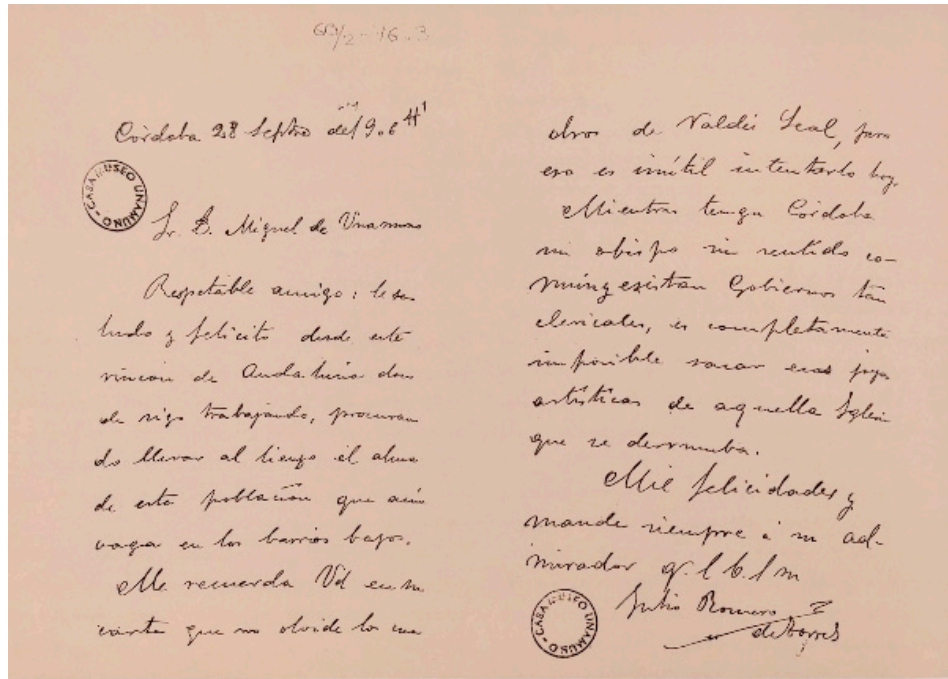 69/2-16.3
Córdoba 28 Septbre del 906
CASA MUSEO UNAMUNO
Sr. D. Miguel de Unamuno
Respetable amigo: le sa
ludo y felicito desde este
rincon de Andalucia don
de sigo trabajando, procuran
do llevar al lienzo el alma
de esta población que aún
vaga en los barrios bajos.
Me recuerda Vd en su
carta que no olvide los cua
dros de Valdés Leal, pero
eso es inútil intentarlo hoy.
Mientras tenga Córdoba
un obispo sin sentido co-
mún y existan Gobiernos tan
clericales, es completamente
imposible sacar esas joyas
artísticas de aquella Iglesia
que se derrumba.
Mil felicidades y
mande siempre á su ad-
mirador q. l. b. l. m
Julio Romero
de Torres
CASA MUSEO UNAMUNO